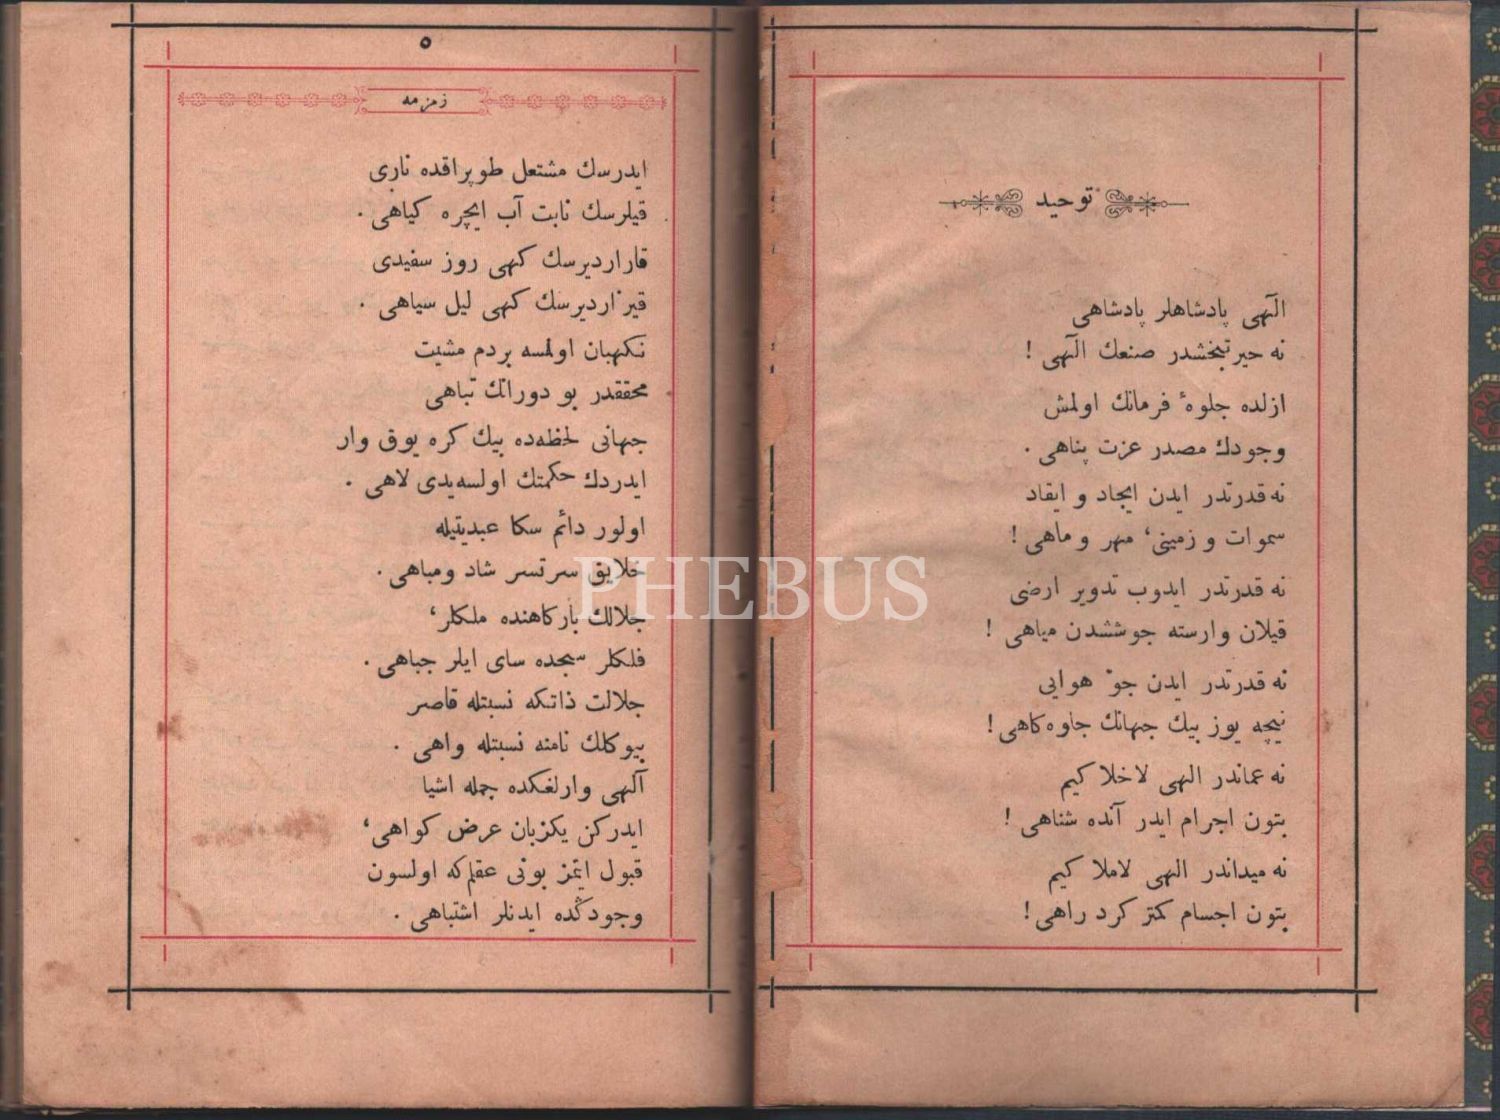 توحید
الٓهی پادشاهلر پادشاهی
نه حیرتبخشدر صنعك الٓهی !
ازلده جلوهٔ فرمانك اولمش
وجودك مصدر عزت پناهی .
نه قدرتدر ایدن ایجاد و ایقاد
سموات و زمینی، مهر و ماهی !
نه قدرتدر ایدوب تدویر ارضی
قیلان وارسته جوششدن میاهی !
نه قدرتدر ایدن جوّ هوایی
نیچه یوز بیك جهانك جلوه كاهی !
نه عماندر الهی لاخلا كیم
بتون اجرام ایدر آنده شناهی !
نه میداندر الهی لاملا كیم
بتون اجسام كمتر كرد راهی !
٥
زمزمه
ایدرسك مشتعل طوپراقده ناری
قیلرسك نابت آب ایچره كیاهی .
قاراردیرسك كهی روز سفیدی
قیزاردیرسك كهی لیل سیاهی .
نكهبان اولمسه بردم مشیت
محققدر بو دورانك تباهی
جهانی لحظه‌ده بیك كره یوق وار
ایدردك حكمتك اولسه‌یدی لاهی .
اولور دائم سكا عبدیتیله
خلایق سرتسر شاد ومباهی .
جلالك باركاهنده ملكلر،
فلكلر سجده سای ایلر جباهی .
جلالت ذاتكه نسبتله قاصر
بیوكلك نامنه نسبتله واهی .
آلهی وارلغكده جمله اشیا
ایدركن یكزبان عرض كواهی،
قبول ایتمز بونی عقلم‌كه اولسون
وجودڭده ایدنلر اشتباهی .
PHEBUS